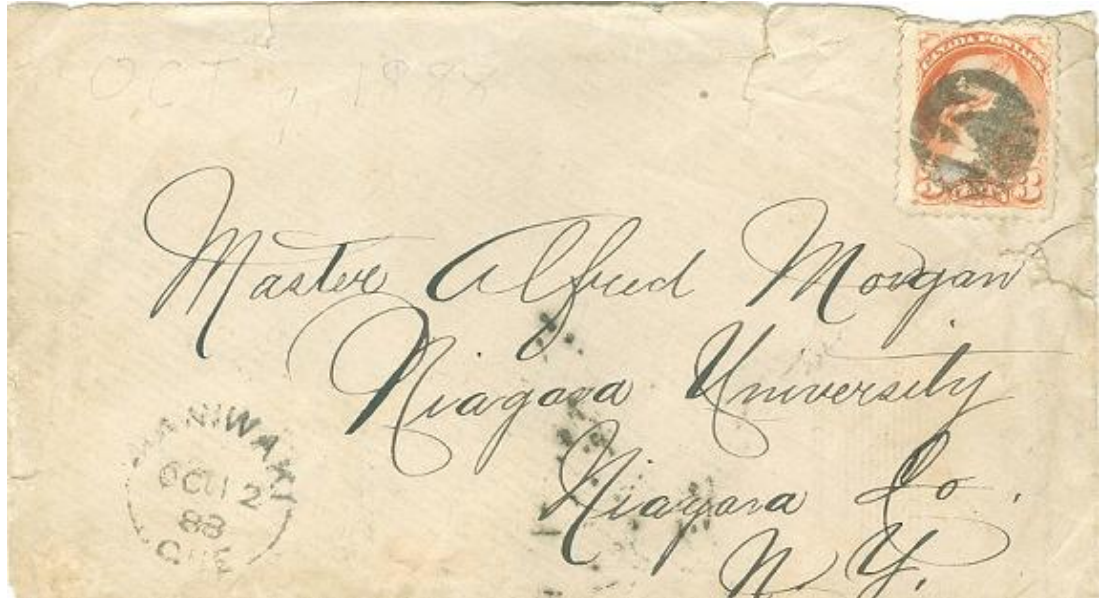 OCT 1888
CANADA POSTAGE
3 CENTS 3
Master Alfred Morgan
Niagara University
Niagara Co.
N.Y.
MANIWAKI
OCT 12
88
QUE